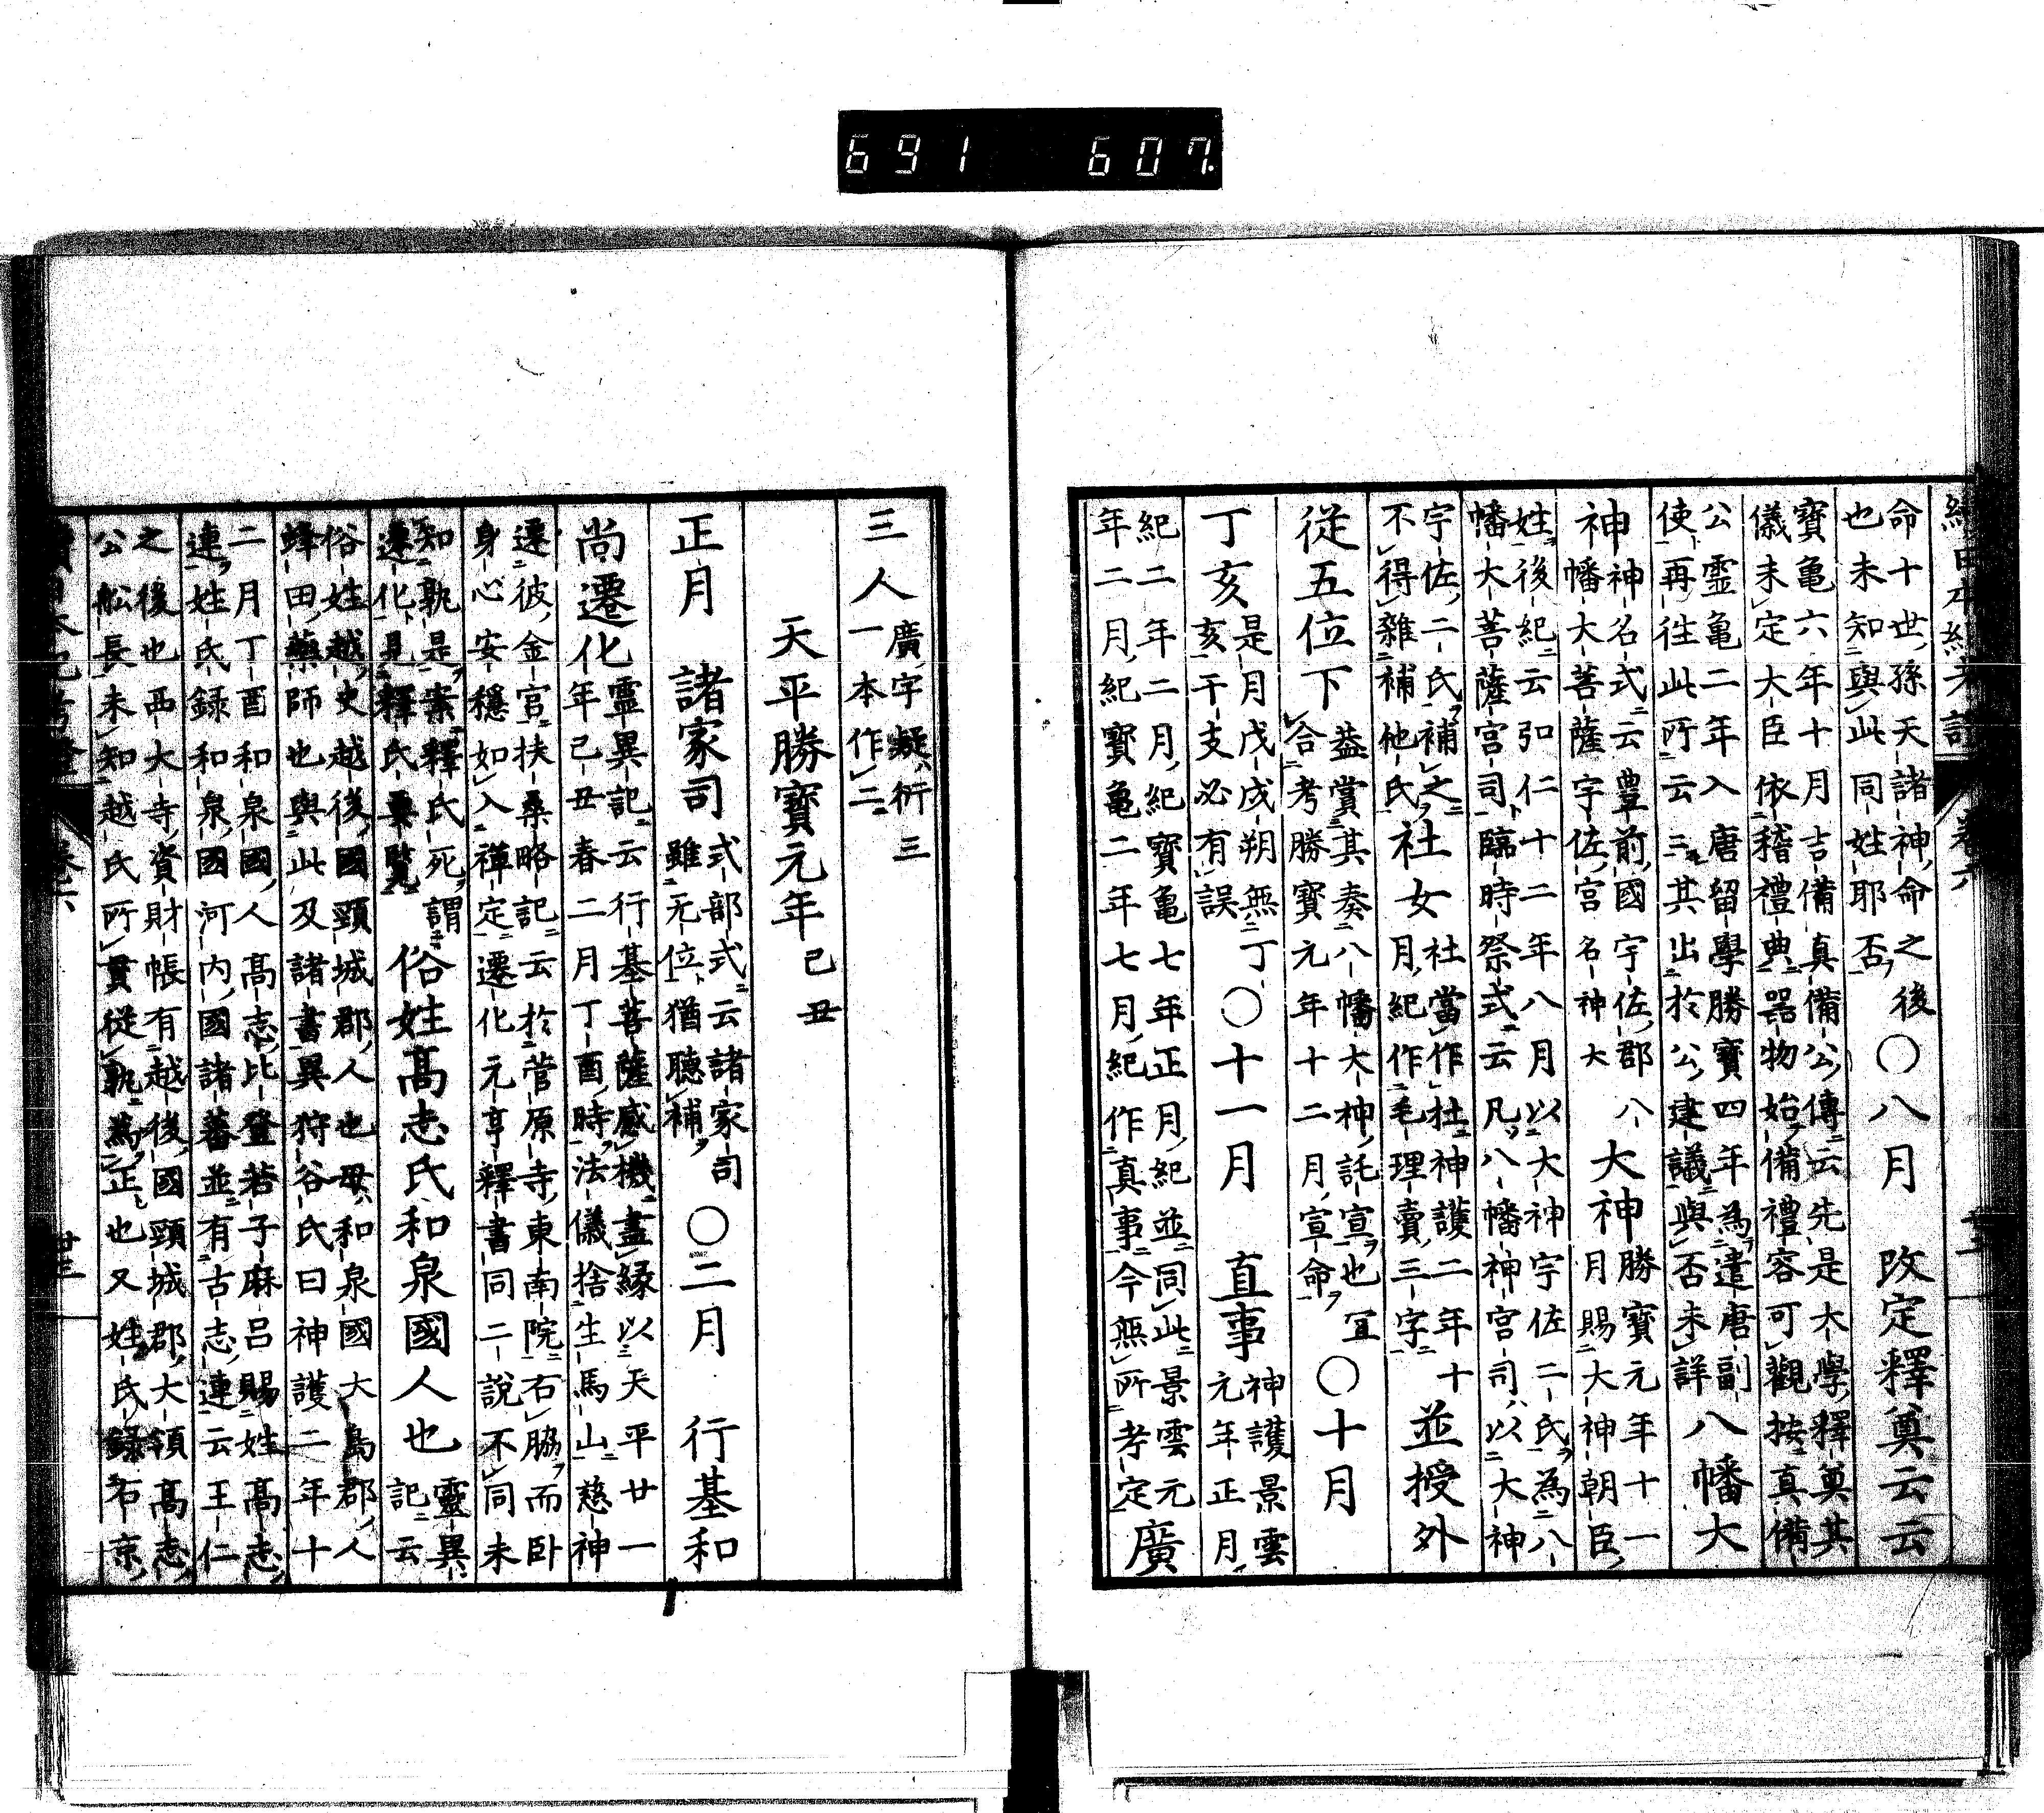 691 607
命十世孫天諸神命之後
也未知與此同姓耶否
〇八月 改定釋奠云云
寶亀六年十月吉備真備公傳云先是大學釋奠其
儀未定大臣依稽禮典器物始備禮容可觀按真備
公霊亀二年入唐留學勝寶四年為遣唐副
使再往此所云云其出於公建議與否未詳
八幡大
神
神名式云豊前國宇佐郡八
幡大菩薩宇佐宮名神大
大神
勝寶元年十一
月賜大神朝臣
姓後紀云弘仁十二年八月以大神宇佐二氏為八
幡大菩薩宮司臨時祭式云凡八幡神宮司以大神
宇佐二氏補之
不得雜補他氏
社女
社當作杜神護二年十
月紀作毛理賣三字
並授外
從五位下
葢賞其奏八幡大神託宣也宜
合考勝寶元年十二月宣命
〇十月
丁亥
是月戊戌朔無丁
亥干支必有誤
〇十一月 直事
神護景雲
元年正月
紀二年二月紀寶亀七年正月紀並同此景雲元
年二月紀寶亀二年七月紀作真事今無所考定
廣
三人
廣字疑衍三
人一本作二
天平勝寶元年 己丑
正月 諸家司
式部式云諸家司
雖无位猶聽補
〇二月 行基和
尚遷化
靈異記云行基菩薩感機盡緣以天平廿一
年己丑春二月丁酉時法儀捨生馬山慈神
遷彼金宮扶桑略記云於菅原寺東南院右脇而卧
身心安穩如入禪定遷化元亨釋書同二說不同未
知孰是
遷化見釋氏要覧
俗姓髙志氏和泉國人也
靈異
記云
俗姓越史越後國頸城郡人也母和泉國大鳥郡人
蜂田藥師也與此及諸書異狩谷氏曰神護二年十
二月丁酉和泉國人髙志比登若子麻呂賜姓髙志
連姓氏録和泉國河内國諸蕃並有古志連云王仁
之後也西大寺資財帳有越後國頸城郡大領髙志
公舩長未知越氏所貫從孰為正也又姓氏録右京